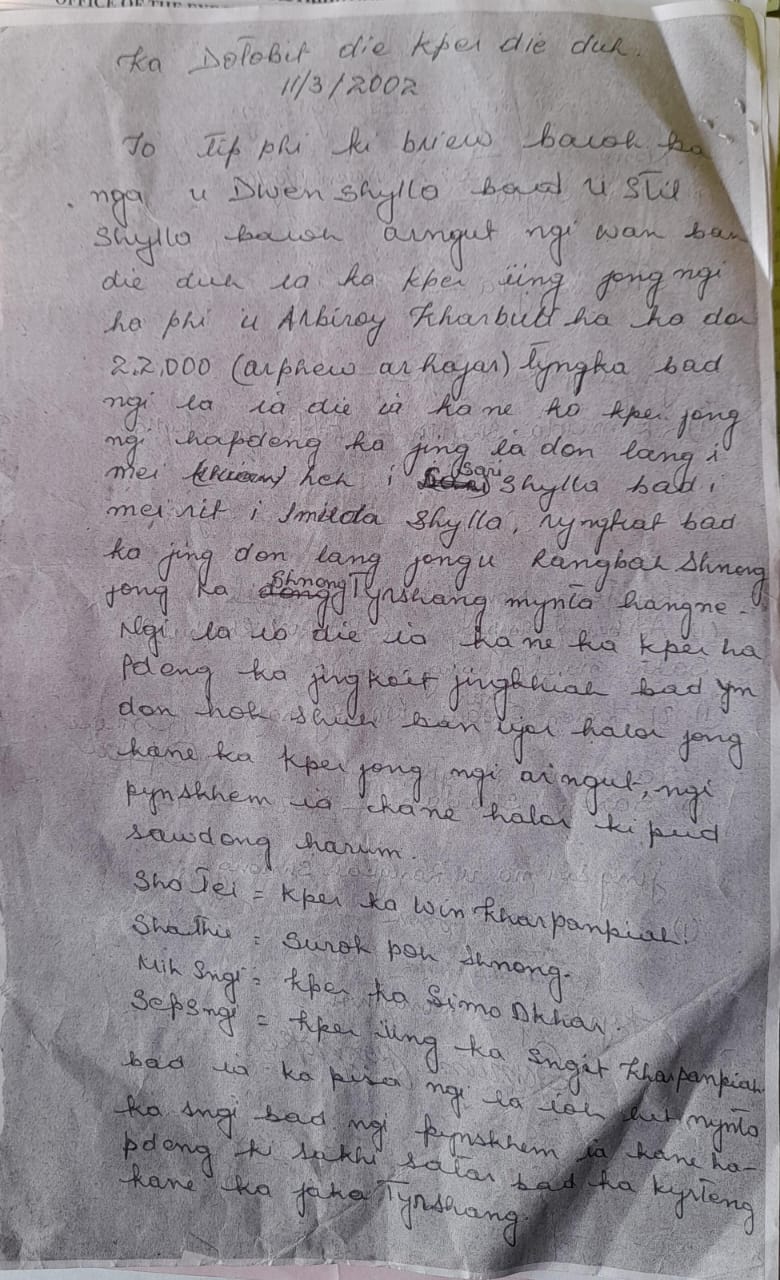 OFFICE OF THE
Ka Dotobit die kper die duh.
11/3/2002
To tip phi ki briew baroh ba
nga u Dwen Shylla bad u Stil
Shylla baroh arngut ngi wan ban
die duh ia ka kper iing jong ngi
ha phi u Arbiroy Kharbuli ha ka dor
22,000 (arphew ar hajar) tyngka bad
ngi la ia die ia kane ka kper jong
ngi hapdeng ka jing ia don lang i
mei heh i Sari Shylla bad i
mei rit i Imilda Shylla, ryngkat bad
ka jing don lang jong u Rangbah Shnong
jong ka Shnong Tyrshang mynta hangne.
Ngi la ia die ia kane ka kper ha
Pdeng ka jingkoit jingkhiah bad ym
don hok shuh ban ujor halor jong
kane ka kper jong ngi arngut, ngi
pynskhem ia kane halor ki pud
sawdong harum.
Sha Tei = Kper ka Win Kharpanpiah.
Sha Thie = Surok poh Shnong.
Mih Sngi = Kper ka Simo Dkhar.
Sep Sngi = Kper iing ka Sngit Kharpanpiah
bad ia ka pisa ngi la ioh lut mynta
ka sngi bad ngi pynskhem ia kane ha-
pdeng ki sakhi satar bad ha kyrteng
kane ka jaka Tyrshang.